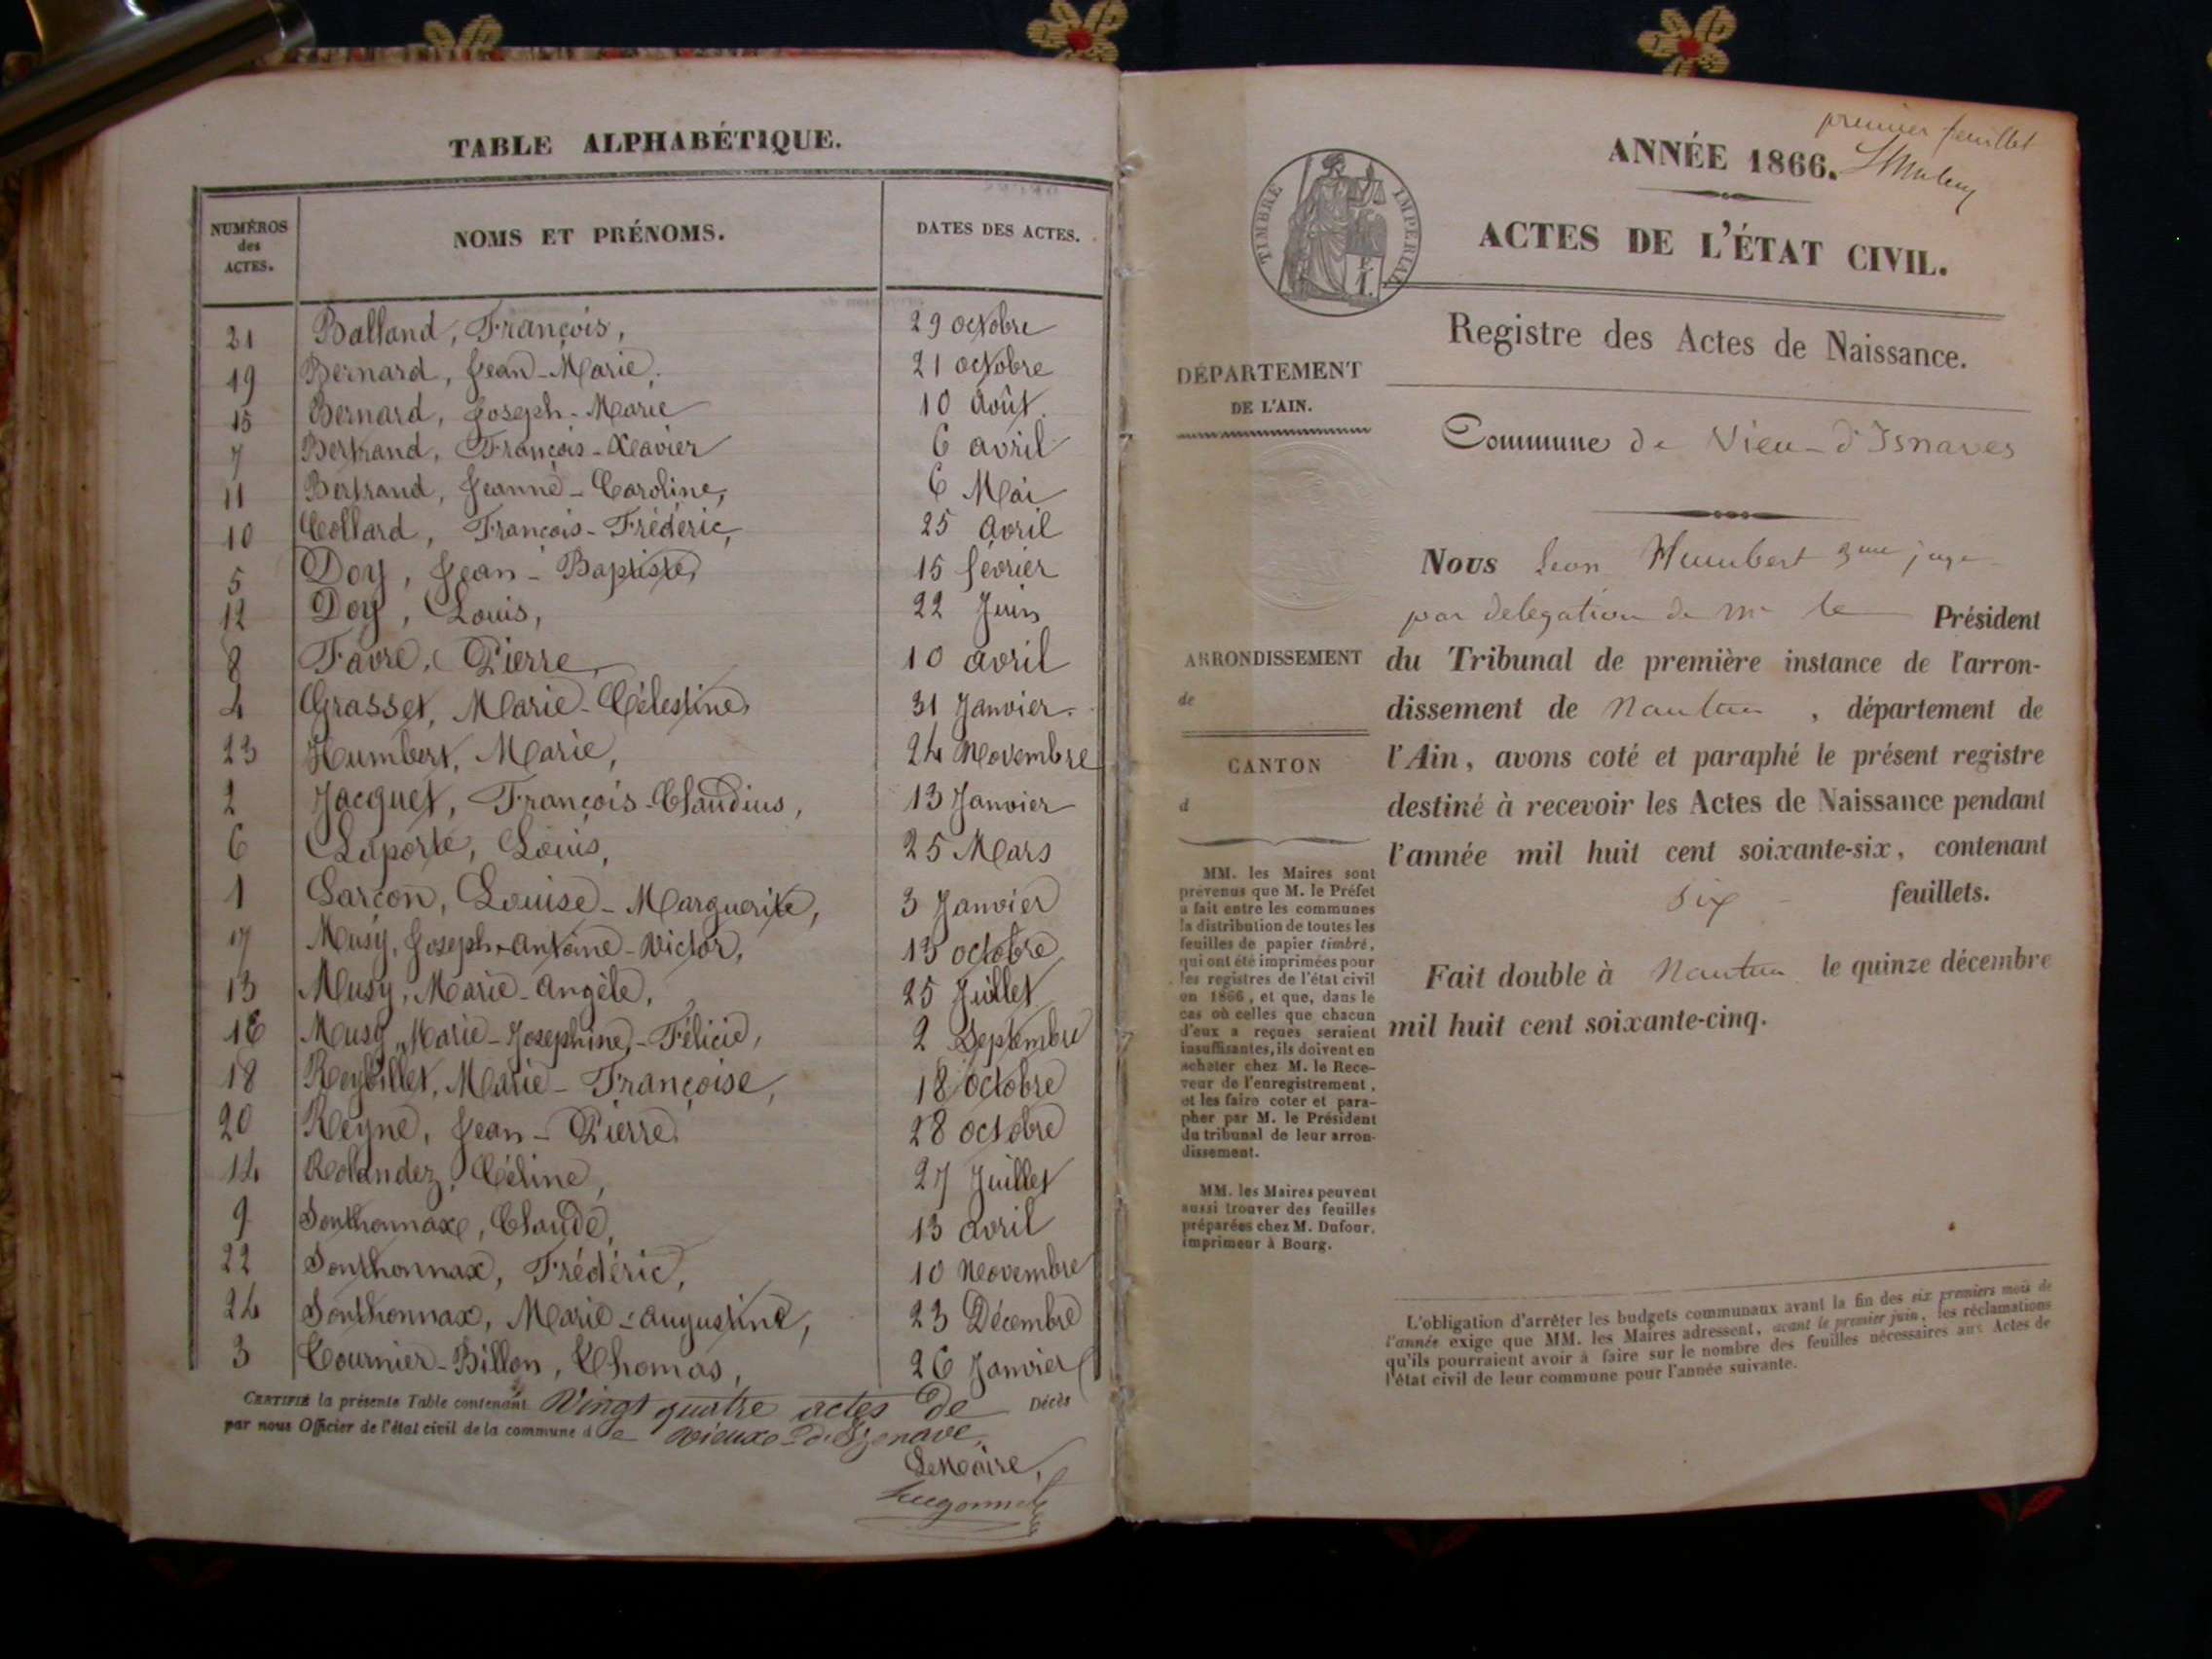 TABLE ALPHABÉTIQUE.
NUMÉROS des ACTES. NOMS ET PRÉNOMS. DATES DES ACTES.
21 Balland, François, 29 octobre
19 Bernard, Jean-Marie, 21 octobre
15 Bernard, Joseph-Marie 10 août
7 Bertrand, François-Xavier 6 avril
11 Bertrand, Jeanne-Caroline, 6 Mai
10 Collard, François-Frédéric, 25 avril
5 Doy, Jean-Baptiste, 15 février
12 Doy, Louis, 22 Juin
8 Favre, Pierre, 10 avril
4 Grasset, Marie-Célestine, 31 Janvier.
23 Humbert, Marie, 24 Novembre
2 Jacquet, François-Claudius, 13 Janvier
6 Laporte, Louis, 25 Mars
1 Larçon, Louise-Marguerite, 3 Janvier
17 Musy, Joseph-antoine-Victor, 15 octobre
13 Musy, Marie-angèle, 25 Juillet
16 Musy, Marie-Josephine-Félicie, 2 Septembre
18 Reybillet, Marie-Françoise, 18 octobre
20 Reyne, Jean-Pierre. 28 octobre
14 Rolandez, Céline, 27 Juillet
9 Sonthonnax, Claude, 13 avril
22 Sonthonnax, Frédéric, 10 Novembre
24 Sonthonnax, Marie-augustine, 23 Décembre
3 Tournier-Billon, Thomas, 26 Janvier
CERTIFIÉ la présente Table contenant Vingt quatre actes de Décès
par nous Officier de l'état civil de la commune de Vieux-d'Izenave,
Le Maire,
Hugonnet
premier feuillet
ANNÉE 1866.
TIMBRE IMPERIAL
ACTES DE L'ÉTAT CIVIL.
Registre des Actes de Naissance.
DÉPARTEMENT
DE L'AIN.
Commune de Vieu-d'Isnaves
Nous Leon Humbert juge
par delegation de Mr le Président
du Tribunal de première instance de l'arron-
dissement de Nantua, département de
l'Ain, avons coté et paraphé le présent registre
destiné à recevoir les Actes de Naissance pendant
l'année mil huit cent soixante-six, contenant
six feuillets.
Fait double à Nantua le quinze décembre
mil huit cent soixante-cinq.
ARRONDISSEMENT
de
CANTON
d
MM. les Maires sont
prévenus que M. le Préfet
a fait entre les communes
la distribution de toutes les
feuilles de papier timbré,
qui ont été imprimées pour
les registres de l'état civil
en 1866, et que, dans le
cas où celles que chacun
d'eux a reçues seraient
insuffisantes, ils doivent en
acheter chez M. le Rece-
veur de l'enregistrement,
et les faire coter et para-
pher par M. le Président
du tribunal de leur arron-
dissement.
MM. les Maires peuvent
aussi trouver des feuilles
préparées chez M. Dufour,
imprimeur à Bourg.
L'obligation d'arrêter les budgets communaux avant la fin des six premiers mois de
l'année exige que MM. les Maires adressent, avant le premier juin, les réclamations
qu'ils pourraient avoir à faire sur le nombre des feuilles nécessaires aux Actes de
l'état civil de leur commune pour l'année suivante.